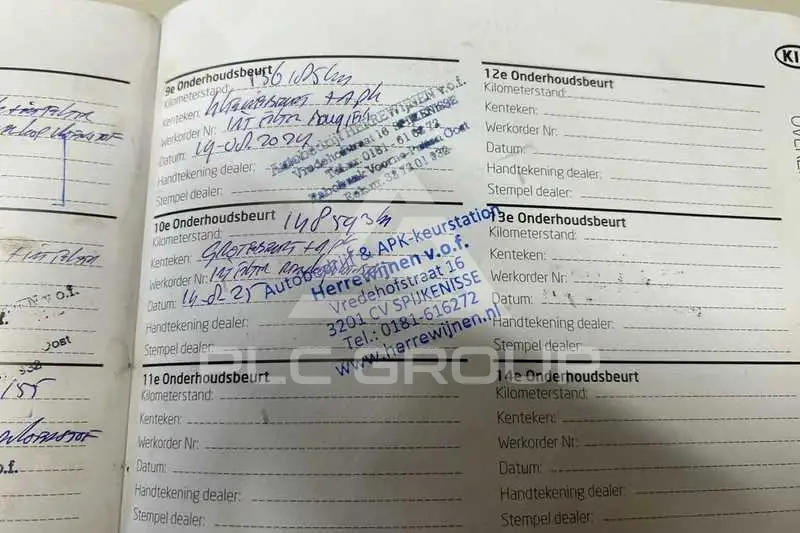 9e Onderhoudsbeurt
Kilometerstand: 136185 km
Kenteken: + APK
Werkorder Nr: INT Filter
Datum: 19-08-2024
Handtekening dealer:
Stempel dealer:
Autobedrijf HERREWIJNEN v.o.f.
Vredehofstraat 16 SPIJKENISSE
Tel.nr. 0181-616272
Rabobank Voorne-Putten Oost
10e Onderhoudsbeurt
Kilometerstand: 148593 km
Kenteken: Grotebeurt + APK
Werkorder Nr: INT Filter
Datum: 14-8-25
Handtekening dealer:
Stempel dealer:
Autobedrijf & APK-keurstation
Herrewijnen v.o.f.
Vredehofstraat 16
3201 CV SPIJKENISSE
Tel.: 0181-616272
www.herrewijnen.nl
11e Onderhoudsbeurt
Kilometerstand:
Kenteken:
Werkorder Nr:
Datum:
Handtekening dealer:
Stempel dealer:
KI
12e Onderhoudsbeurt
Kilometerstand:
Kenteken:
Werkorder Nr:
Datum:
Handtekening dealer:
Stempel dealer:
13e Onderhoudsbeurt
Kilometerstand:
Kenteken:
Werkorder Nr:
Datum:
Handtekening dealer:
Stempel dealer:
14e Onderhoudsbeurt
Kilometerstand:
Kenteken:
Werkorder Nr:
Datum:
Handtekening dealer:
Stempel dealer:
PLC GROUP